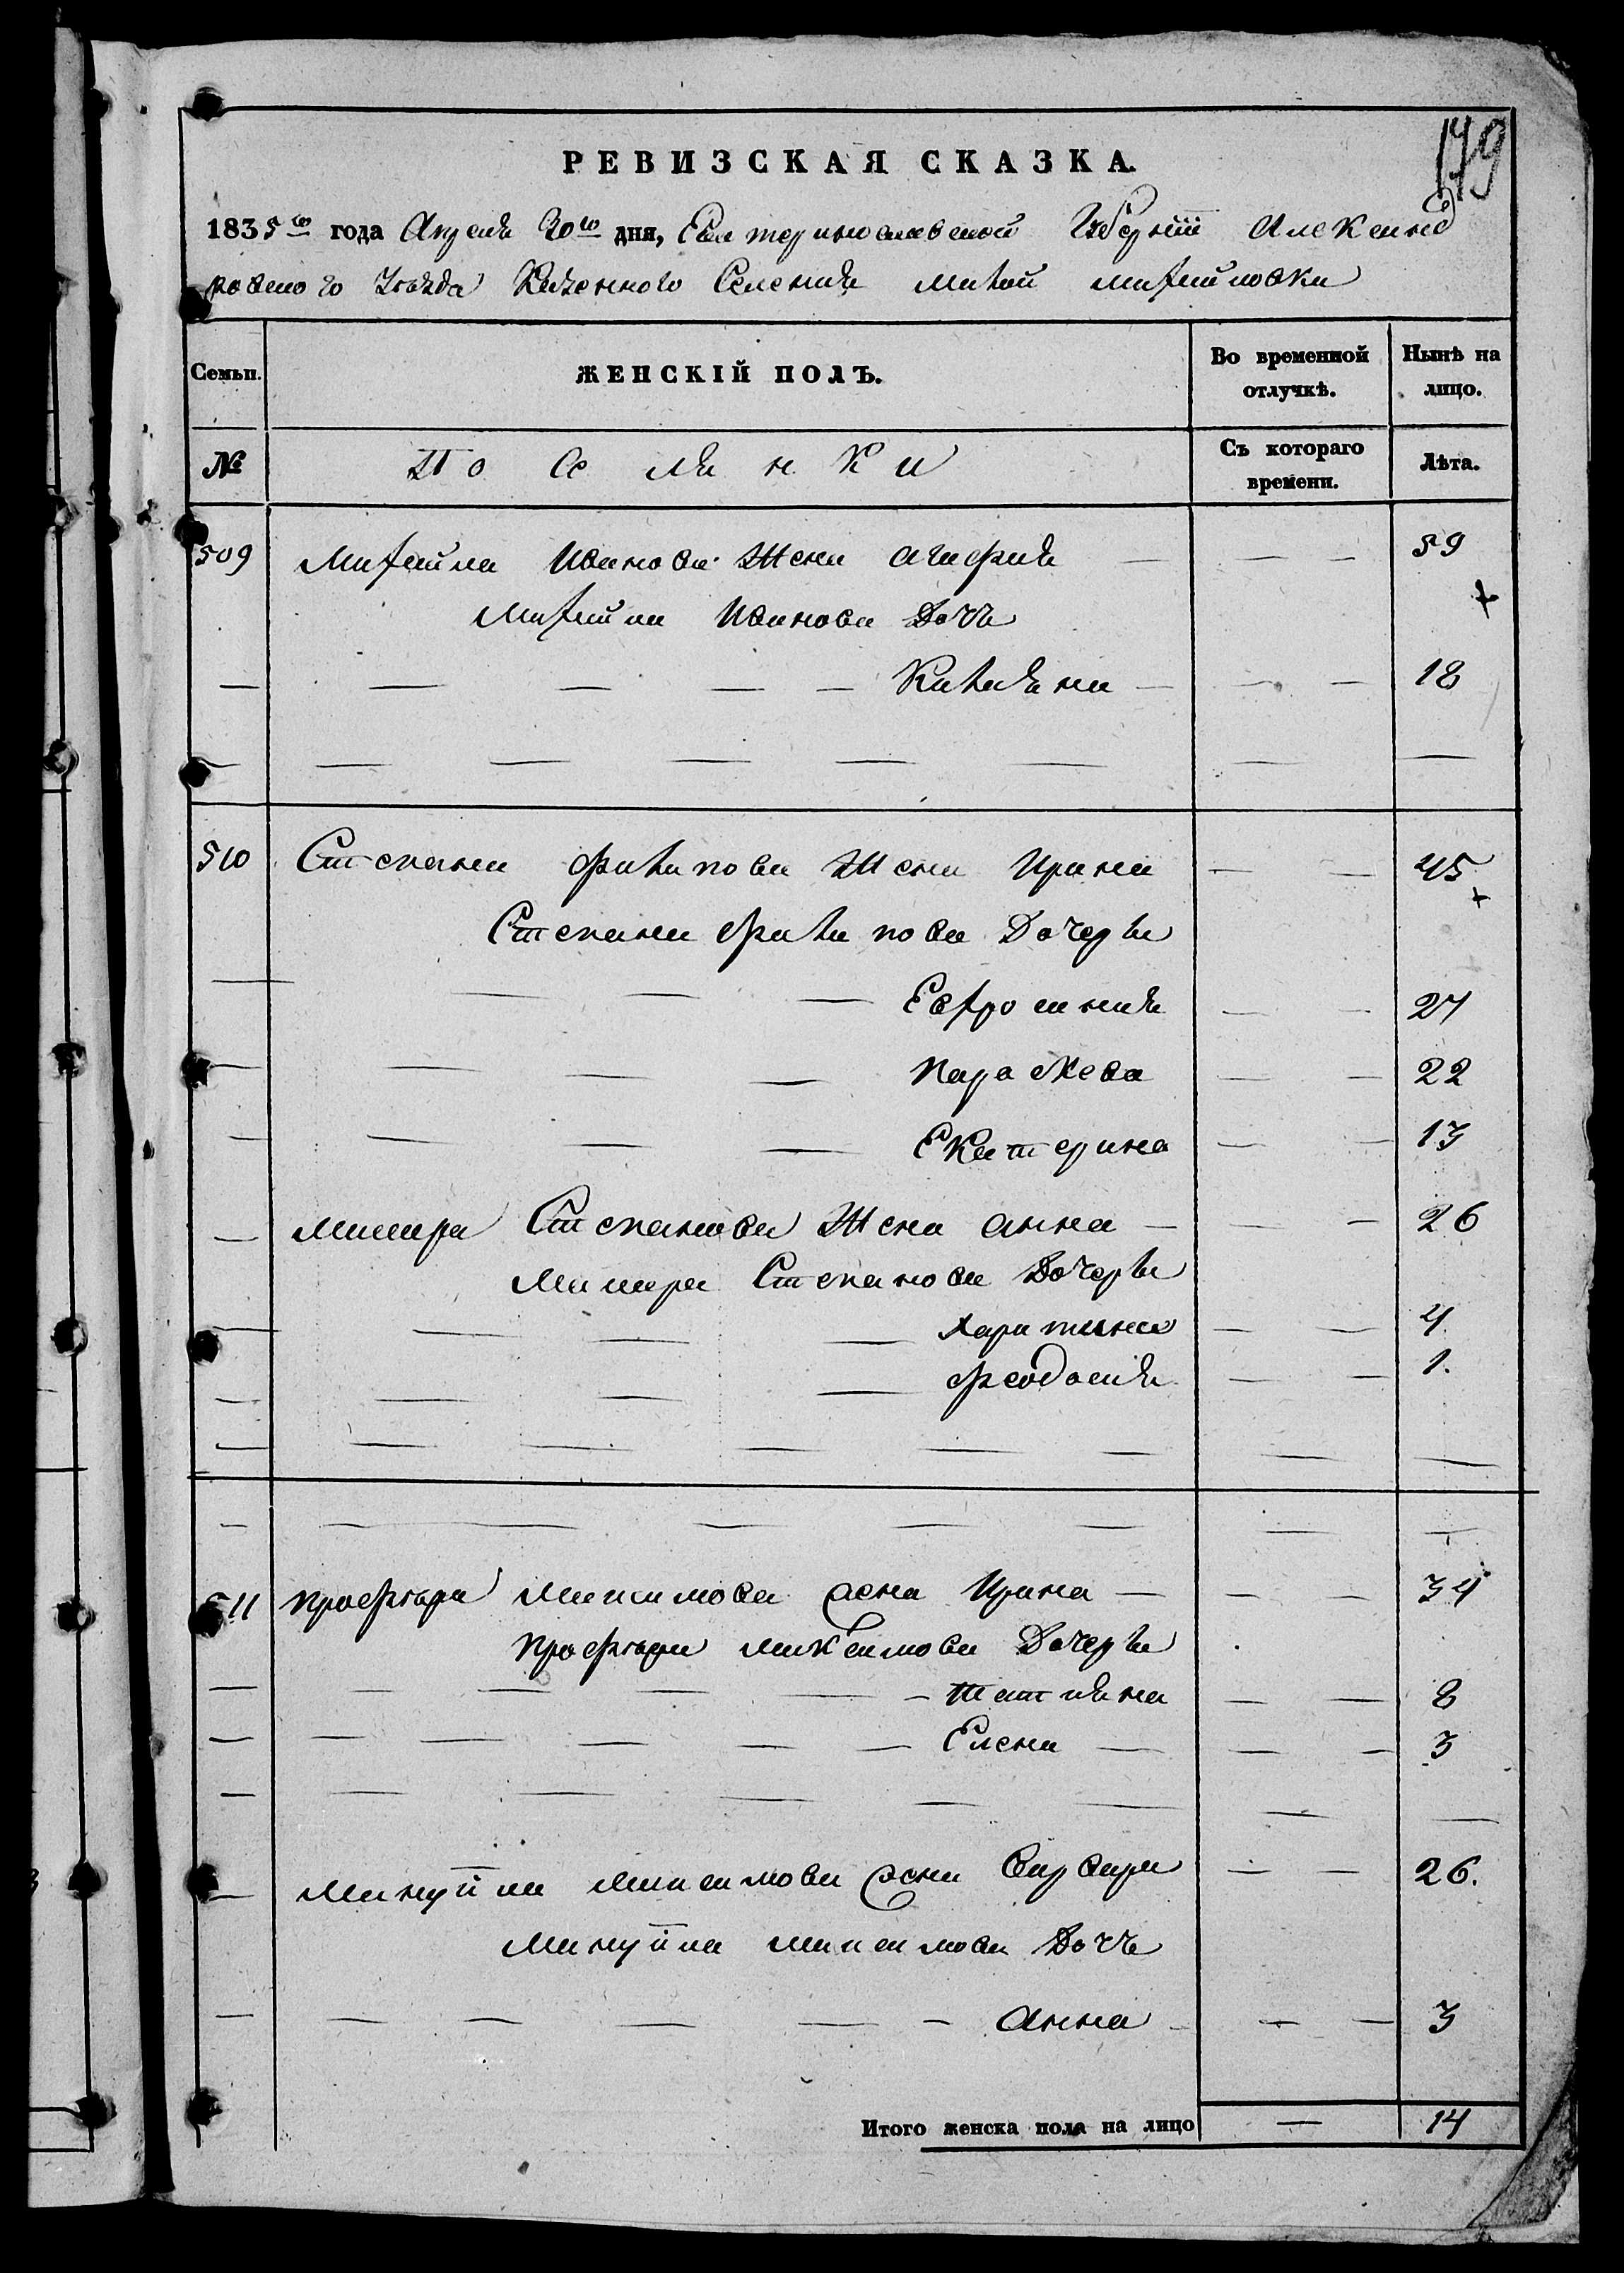 179
РЕВИЗСКАЯ СКАЗКА.
1835го года Апреля 30го дня, Екатеринославской Губернiи Александ
ровскаго Уѣзда Казенного Селения Малой Михайловки
Семьи.
ЖЕНСКІЙ ПОЛЪ.
Во временной отлучкѣ.
Нынѣ на лицо.
№
Поселянки
Съ котораго времени.
Лѣта.
509 Михайла Иванова Жена Агафия — — — 59
Михайла Иванова Дочь
— — — — — Килияна — — — 18
— — — — — — — —
510 Степана Филипова Жена Ирина — — 45
Степана Филипова Дочерьи
— — — — Евфросиния — — 27
— — — — Параскева — — 22
— — — — Екатерина — — 13
— Степанова Жена Анна — — — 26
Степанова Дочерьи
— — — — Харитина — — 4
— — — — Феодосия — — 1.
— — — — — — — —
— — — — — — —
511 Максимова жена Ирина — — — 34
Максимова Дочерьи
— — — — — — Татияна — — 8
— — — — — — Елена — — — 3
— — — — — — — —
— Мануйла Максимова жена Варвара — — 26.
Мануйла Максимова Дочь
— — — — — — Анна — — — 3
Итого женска пола на лицо — 14